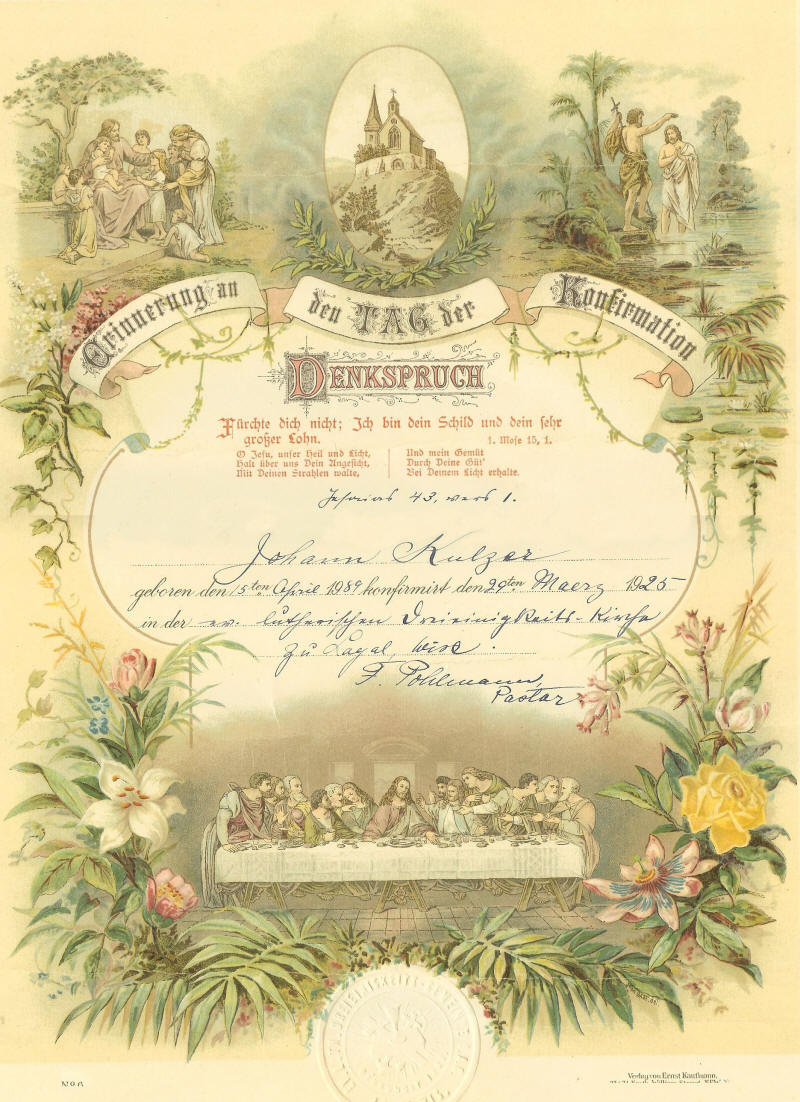 Erinnerung an den TAG der Konfirmation
DENKSPRUCH
Fürchte dich nicht; Ich bin dein Schild und dein sehr
großer Lohn. 1. Mose 15, 1.
O Jesu, unser Heil und Licht,
Halt über uns Dein Angesicht,
Mit Deinen Strahlen walte,
Und mein Gemüt
Durch Deine Güt'
Bei Deinem Licht erhalte.
43, vers 1.
Johann Kulzer
geboren den 15ten April 1989 konfirmirt den 29ten Maerz 1925
in der ev. lutherischen Dreieinigkeits-Kirche
zu Wisc.
F. Pohlmann,
Pastor
No 6
Verlag von Ernst Kaufmann,